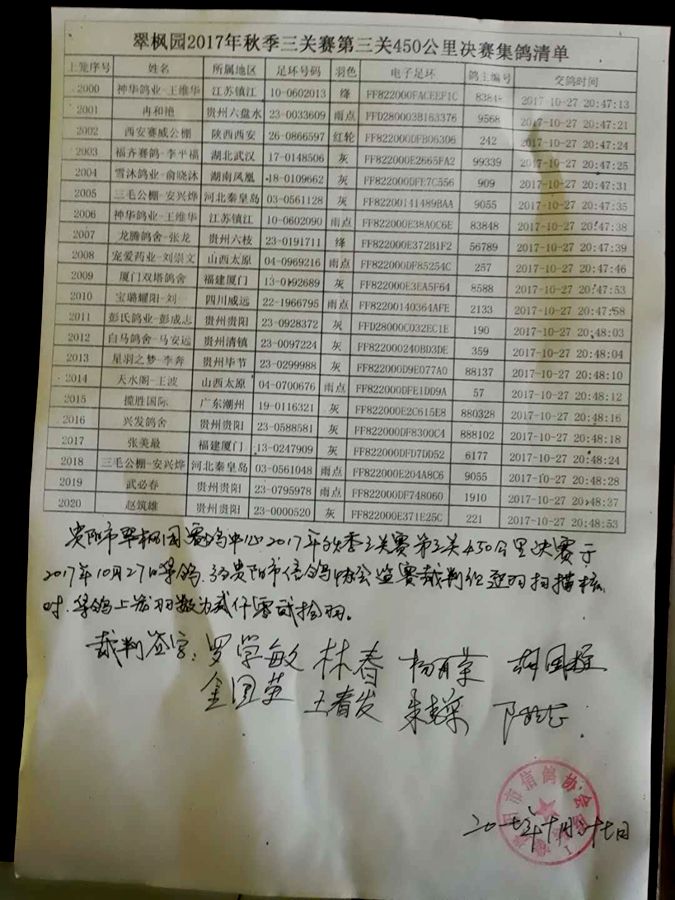 翠枫园2017年秋季三关赛第三关450公里决赛集鸽清单
上笼序号 姓名 所属地区 足环号码 羽色 电子足环 鸽主编号 交鸽时间
2000 神华鸽业-王维华 江苏镇江 10-0602013 绛 FF822000FACEEF1C 83848 2017-10-27 20:47:13
2001 冉和艳 贵州六盘水 23-0033609 雨点 FFD280003B163376 9568 2017-10-27 20:47:21
2002 西安赛威公棚 陕西西安 26-0866597 红轮 FF822000DFB06306 242 2017-10-27 20:47:24
2003 福齐赛鸽-李平福 湖北武汉 17-0148506 灰 FF822000E2665FA2 99339 2017-10-27 20:47:25
2004 雪沐鸽业-俞晓沐 湖南凤凰 18-0109662 灰 FF822000DFE7C556 909 2017-10-27 20:47:31
2005 三毛公棚-安兴烨 河北秦皇岛 03-0561128 灰 FF82200141489BAA 9055 2017-10-27 20:47:35
2006 神华鸽业-王维华 江苏镇江 10-0602090 雨点 FF822000E38A0C6E 83848 2017-10-27 20:47:38
2007 龙腾鸽舍-张龙 贵州六枝 23-0191711 绛 FF822000E372B1F2 56789 2017-10-27 20:47:39
2008 宠爱药业-刘崇文 山西太原 04-0969216 雨点 FF822000DF85254C 257 2017-10-27 20:47:46
2009 厦门双塔鸽舍 福建厦门 13-0192689 灰 FF822000E3EA5F64 8588 2017-10-27 20:47:53
2010 宝璐耀阳-刘一 四川威远 22-1966795 雨点 FF82200140364AFE 2133 2017-10-27 20:47:58
2011 彭氏鸽业-彭成志 贵州贵阳 23-0928372 灰 FFD28000C032EC1E 190 2017-10-27 20:48:03
2012 白马鸽舍-马安远 贵州清镇 23-0097224 灰 FF822000240BD3DE 359 2017-10-27 20:48:04
2013 星羽之梦-李奔 贵州毕节 23-0299988 灰 FF822000D9E077A0 88137 2017-10-27 20:48:10
2014 天水阁-王波 山西太原 04-0700676 雨点 FF822000DFE1DD9A 57 2017-10-27 20:48:12
2015 揽胜国际 广东潮州 19-0116321 灰 FF822000E2C615E8 880328 2017-10-27 20:48:16
2016 兴发鸽舍 贵州贵阳 23-0588581 灰 FF822000DF8300C4 888102 2017-10-27 20:48:18
2017 张美最 福建厦门 13-0247909 灰 FF822000DFD7DD52 6177 2017-10-27 20:48:24
2018 三毛公棚-安兴烨 河北秦皇岛 03-0561048 雨点 FF822000E204A8C6 9055 2017-10-27 20:48:28
2019 武必春 贵州贵阳 23-0795978 雨点 FF822000DF748060 1910 2017-10-27 20:48:37
2020 赵筑雄 贵州贵阳 23-0000520 灰 FF822000E371E25C 221 2017-10-27 20:48:53
贵阳市翠枫园赛鸽中心2017年秋季三关赛第三关450公里决赛于
2017年10月27日集鸽,经贵阳市信鸽协会监赛裁判组逐羽扫描核
对,集鸽上笼羽数为贰仟零贰拾羽。
裁判签字:罗学敏 林春
金国英 王春发
贵阳市信鸽协会
二0一七年十月廿七日